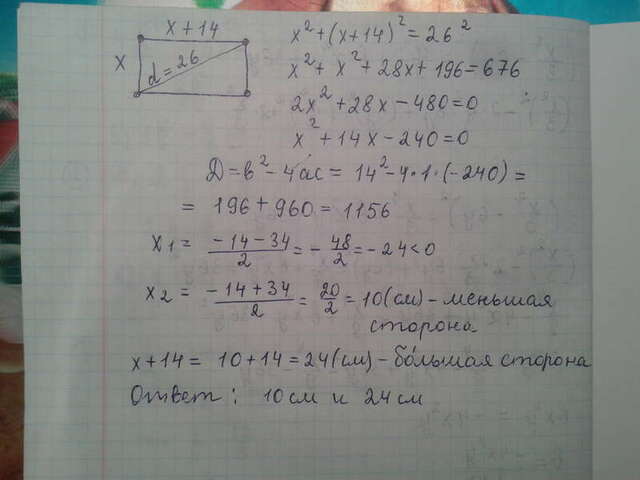 x + 14
x
d = 26
x² + (x+14)² = 26²
x² + x² + 28x + 196 = 676
2x² + 28x - 480 = 0
x² + 14x - 240 = 0
Д = в² - 4ac = 14² - 4·1·(-240) =
= 196 + 960 = 1156
x₁ = (-14 - 34)/2 = - 48/2 = -24 < 0
x₂ = (-14 + 34)/2 = 20/2 = 10(см) - меньшая
сторона
x + 14 = 10 + 14 = 24(см) - бо́льшая сторона
Ответ: 10 см и 24 см